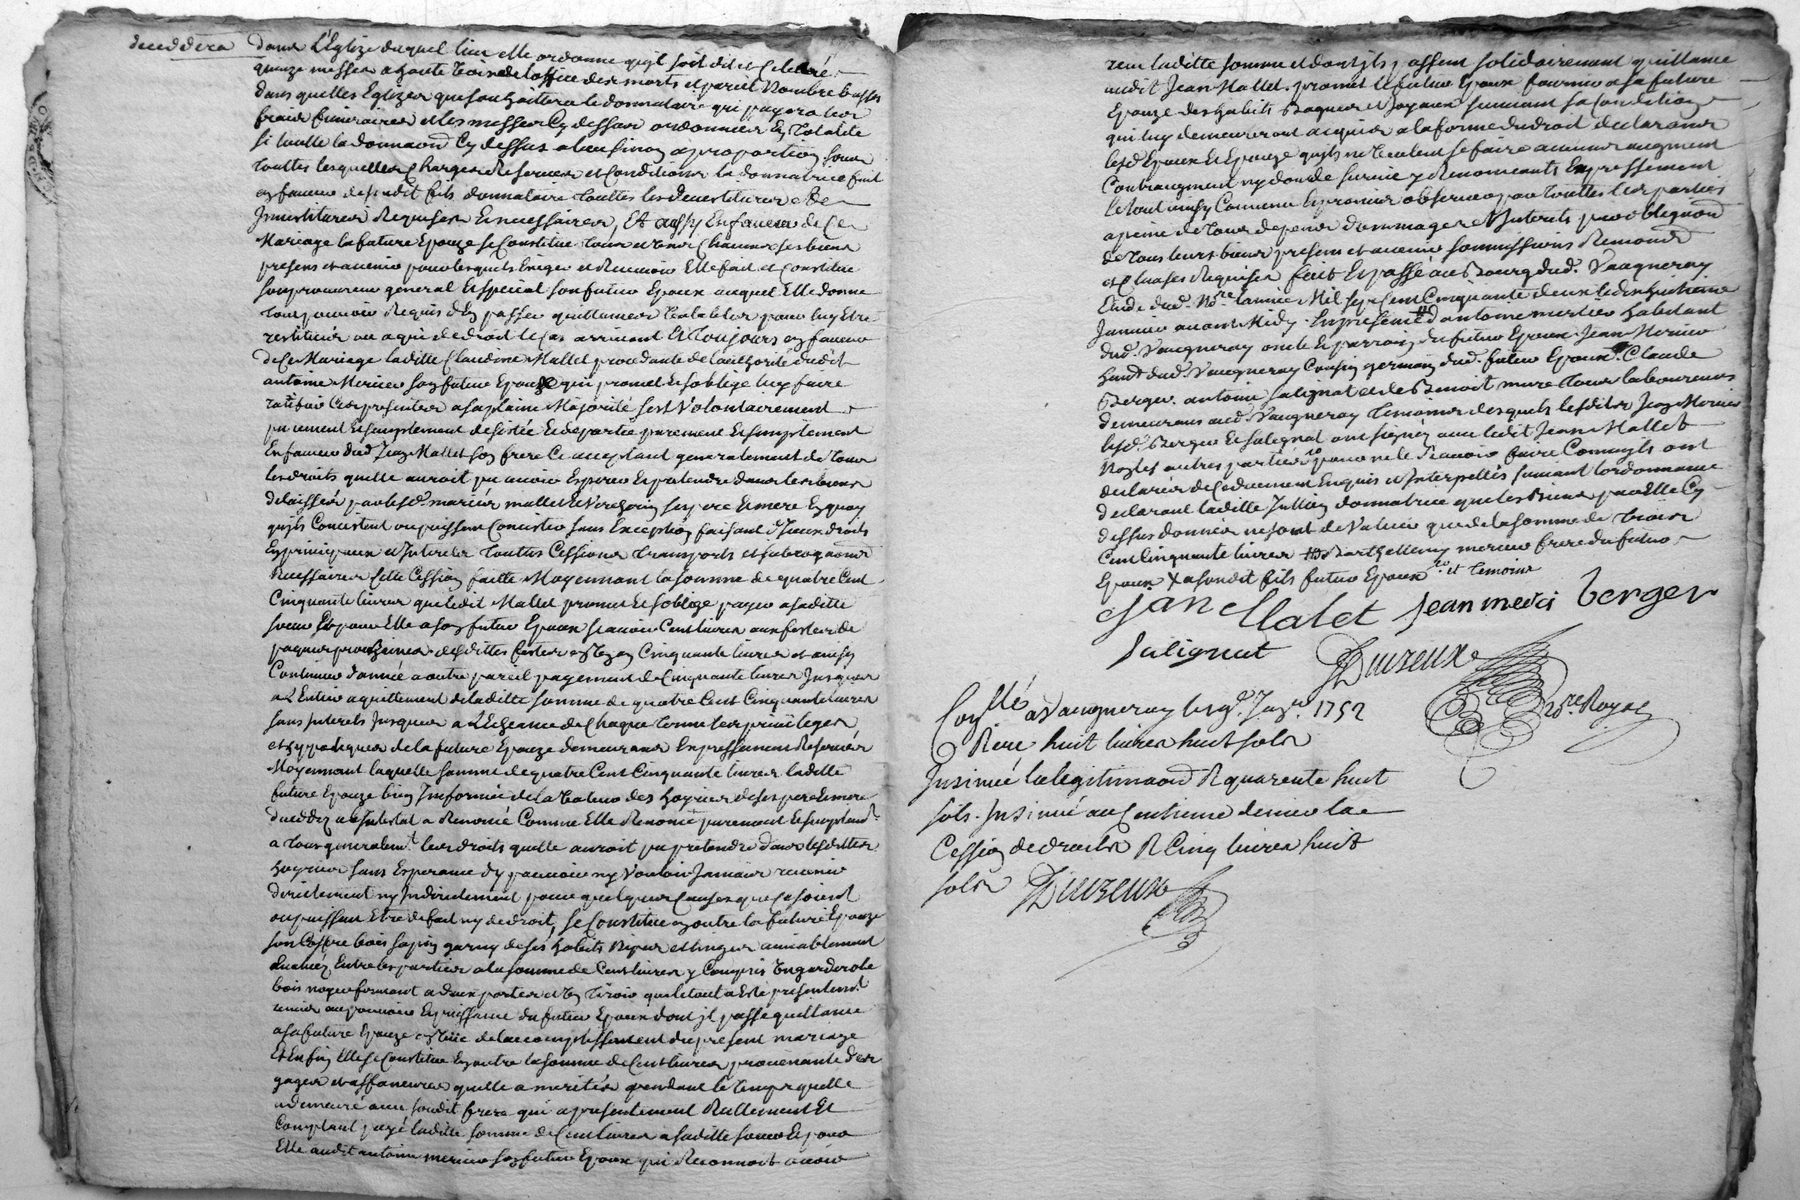 deceddera dans L'Eglize duquel lieu elle ordonne qu'jl soit dit et Celebré
quinze messes a haute voix de l'office des morts et pareil Nombre basses
dans quelles Eglizes que souhaittera le donnataire qui payera les
fraix funeraires et les messes Cy dessus ordonnées En totalité
si toutte la donnaōn Cy dessus a lieu sinon a proportion sous
touttes lesquelles Charges Reserves et Conditions la donnatrice fait
en faveur de sondit fils donnataire touttes les devestitures et de
Jnvestitures Requises Et necessaires, Et aussy En faveur de Ce
Mariage la future Epouze se Constitue tous et uns Chacuns ses biens
presens et avenir pour lesquels Exiger et Recevoir Elle fait et Constitue
son procureur general et special son futur Epoux auquel Elle donne
tout pouvoir Requis d'En passer quittances valables pour luy Etre
restitués ou a qui de droit le Cas arrivant Et toujours en faveur
de Ce Mariage laditte Claudine Mallet procedante de l'authorité dudit
antoine Mercier son futur Epoux qui promet et s'oblige luy faire
ratiffier Ces presentes a sa plaine Majorité s'est Volontairement
purement et simplement desistée Et departie purement et simplement
En faveur dud. Jean Mallet son frere Ce acceptant generalement de tous
les droits quelle auroit pu avoir Esperer et pretendre dans les biens
delaissés par lesd. mariés mallet et Vergoin ses pere et mere En quoy
qu'jls Consistent ou puissent Consister sans Exception faisant d'Jceux droits
En principaux et Jnterets touttes Cessions transports et subrogaōns
Necessaires Cette Cession faitte Moyennant la somme de quatre Cent
Cinquante livres que ledit Mallet promet et s'oblige payer a saditte
soeur Et pour Elle a son futur Epoux scavoir Cent livres aux festes de
paques prochaines desdittes festes en un an Cinquante livres et ainsy
Continuer d'année a autre pareil payement de Cinquante livres Jusques
a L'Entier acquittement de laditte somme de quatre Cent Cinquante livres
sans Jnterets Jusques a L'Echeance de Chaque terme les privileges
et hypotheques de la future Epouze demeurans Expressement Reservés
Moyennant laquelle somme de quatre Cent Cinquante livres laditte
future Epouze bien Jnformée de la valeur des hoyries de ses pere et mere
decedez ab Jntestat a Renoncé Comme Elle Renonce purement et simplemt.
a tous generalemt. les droits quelle auroit pu pretendre dans lesdittes
hoyries sans Esperance d'y pouvoir ny Vouloir Jamais revenir
directement ny Jndirectement pour quelques Causes que Ce soient
ou puissent Etre de fait ny de droit, se Constitue en outre la future Epouze
son Coffre bois sapin garny de ses habits Nipes et linges amiablement
Evalués Entre les parties a la somme de Cent livres y Compris Un garderobe
bois noyer fermant a deux portes et Un tiroir que le tout a Eté presentemt.
remis au pouvoir et puissance du futur Epoux dont jl passe quittance
a sa future Epouze en vüe de l'accomplissement du present mariage
Et Enfin Elle se Constitue En outre la somme de Cent livres provenante des
gages et affaneures quelle a merités pendant le temps quelle
a demeuré avec sondit frere qui a presentement Reellement Et
Comptant payé laditte somme de Cent livres a saditte soeur Et pour
Elle audit antoine mercier son futur Epoux qui Reconnoit avoir
receu laditte somme et dont jls passent solidairement quittance
audit Jean Mallet. promet le futur Epoux fournir a sa future
Epouze des habits Bagues et Joyaux suivant sa Condition
qui luy demeureront acquis a la forme du droit declarans
lesd. Epoux Et Epouze qu'jls ne veulent se faire aucun augment
Contraugment ny don de survie y Renonceants Expressement
le tout ainsy Convenu Et promis observer par touttes les parties
a peine de tous depens dommages et Jnterets par obligaōn
de tous leurs biens presens et avenir soumissions Renonōns
et Clauses Requises fait Et passé au Bourg dud. Vaugneray
Etude dud. Nre. l'année Mil sept Cent Cinquante deux le dix huitieme
Janvier avant Midy. En presence d'antoine mercier habitant
dud. Vaugneray oncle Et parrain du futur Epoux Jean Mercier
habt. dud. Vaugneray Cousin germain dud. futur Epoux. Claude
Berger antoine salignat et de Benoit mure tous laboureurs
demeurans aud. Vaugneray temoins desquels lesdits Jean Mercier
lesd. Berger Et salignat ont signés avec ledit Jean Mallet
Non les autres parties pour ne le scavoir faire Comm'jls ont
declarés de Ce deuement Enquis et Jnterpellés suivant l'ordonnance
declarant laditte Jullien donnatrice que les biens par Elle Cy
dessus donnés ne sont de Valeur que de la somme de trois
Cent Cinquante livres Barthellemy mercier frere du futur
Epoux X a sondit fils futur Epoux et temoins
Jan Malet Jean mercier berger
salignat Duzeux
Nre. Royal
Conllé. a Vaugneray le 29e. Janr. 1752
Reçu huit livres huit sols
Jnsinué la legitimaōn R quarente huit
sols. Jnsinué au Centieme denier la
Cession de droits R Cinq livres huit
sols Duzeux